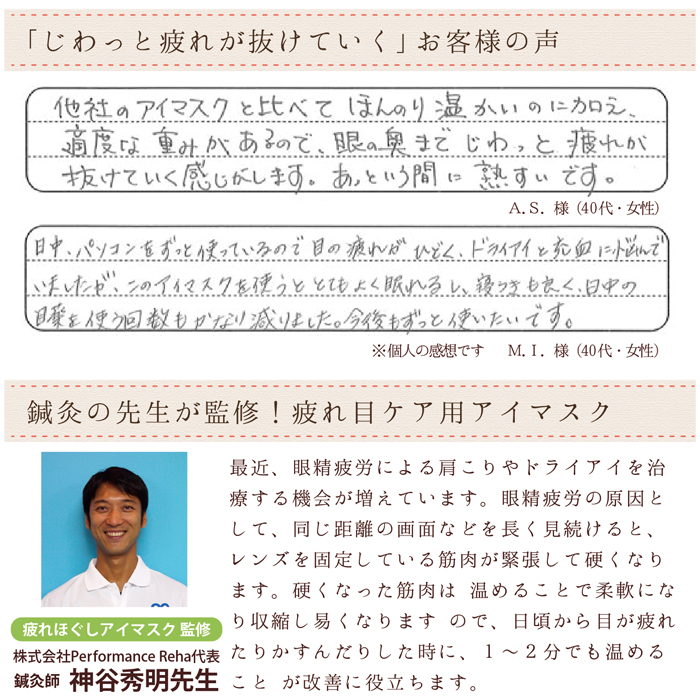 「じわっと疲れが抜けていく」お客様の声
他社のアイマスクと比べてほんのり温かいのに加え、
適度な重みがあるので、眼の奥までじわっと疲れが
抜けていく感じがします。あっという間に熟すいです。
A.S. 様（40代・女性）
日中、パソコンをずっと使っているので目の疲れがひどく、ドライアイと充血に悩んで
いましたが、このアイマスクを使うととてもよく眠れるし、寝つきも良く、日中の
目薬を使う回数もかなり減りました。今後もずっと使いたいです。
※個人の感想です M.I. 様（40代・女性）
鍼灸の先生が監修！疲れ目ケア用アイマスク
最近、眼精疲労による肩こりやドライアイを治
療する機会が増えています。眼精疲労の原因と
して、同じ距離の画面などを長く見続けると、
レンズを固定している筋肉が緊張して硬くなり
ます。硬くなった筋肉は 温めることで柔軟にな
り収縮し易くなります ので、日頃から目が疲れ
たりかすんだりした時に、１〜２分でも温める
こと が改善に役立ちます。
疲れほぐしアイマスク 監修
株式会社Performance Reha代表
鍼灸師 神谷秀明先生